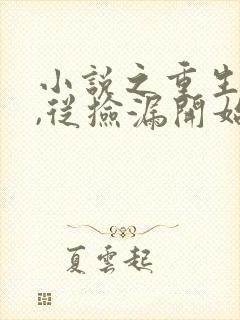 小說之重生
,從撿漏開始
夏雲起